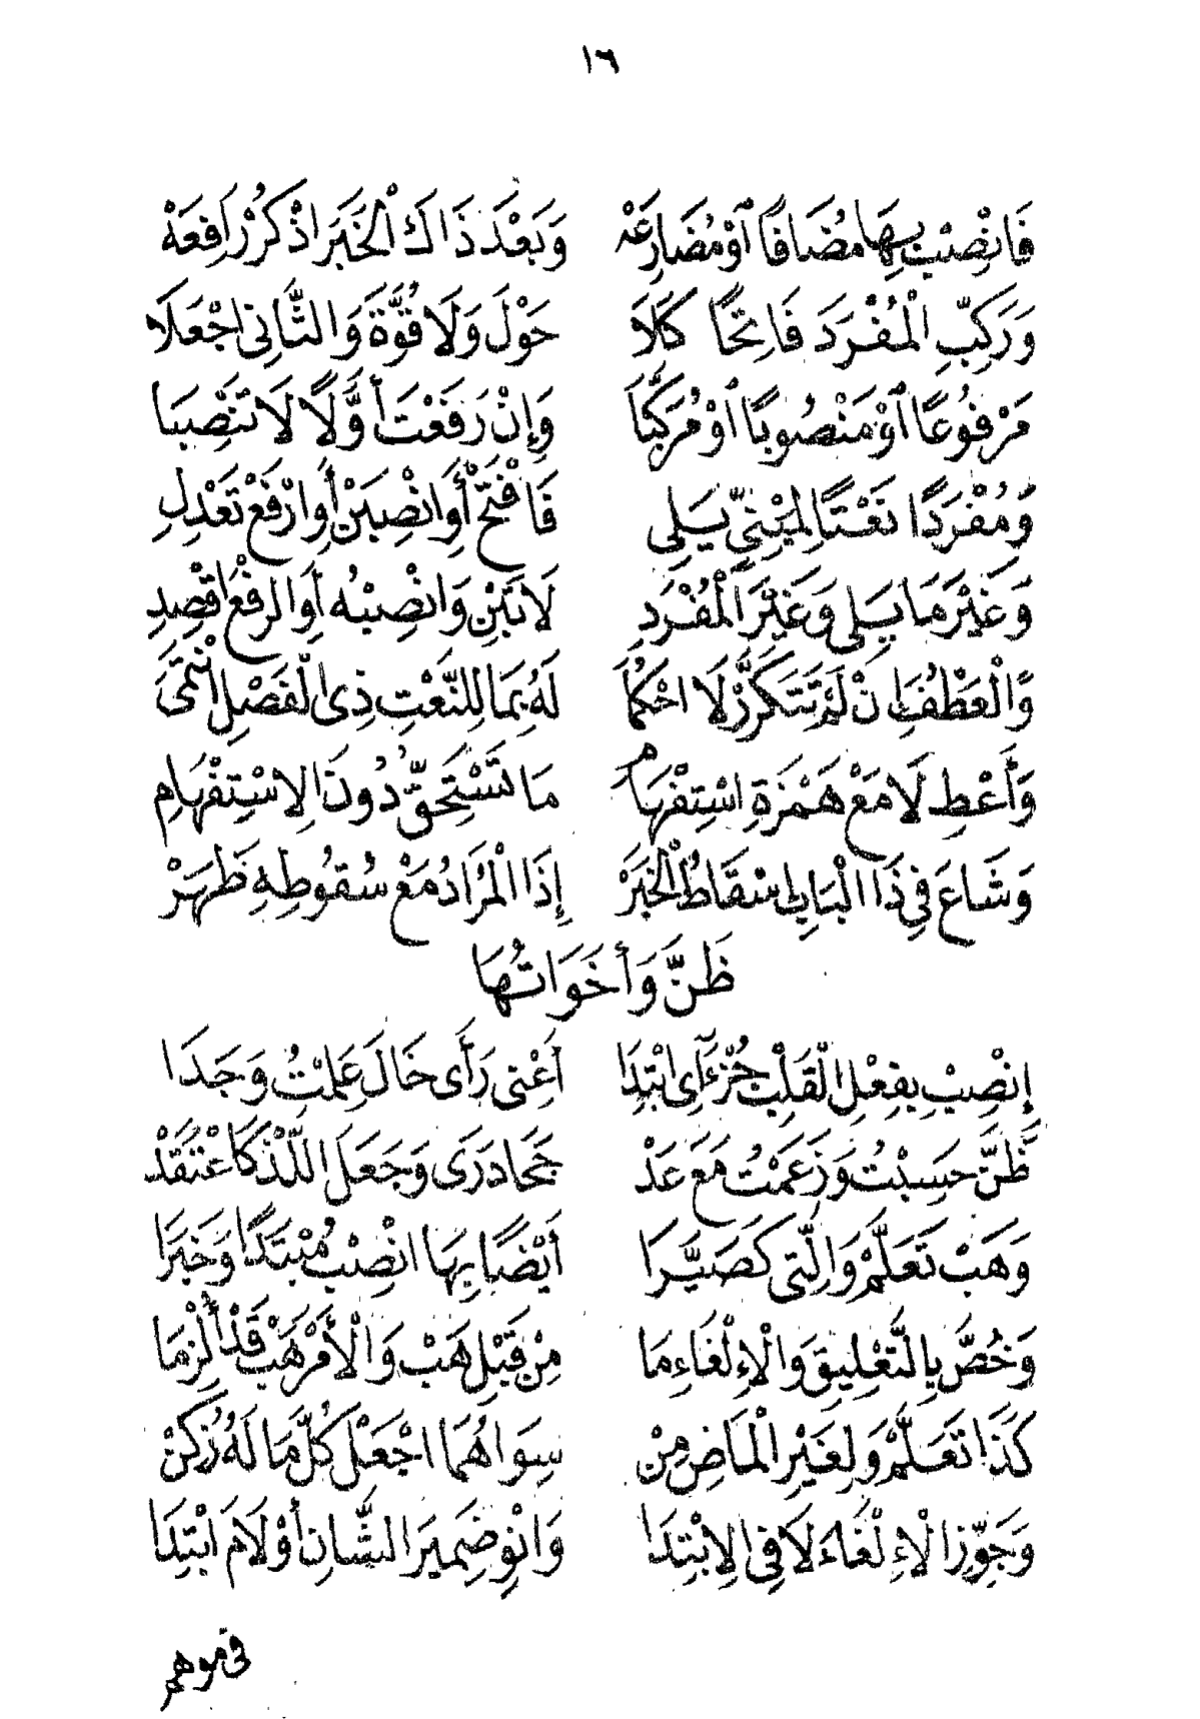 ١٦
فَانْصِبْ بِهَا مُضَافًا اَوْ مُضَارِعَهْ وَبَعْدَ ذَاكَ الْخَبَرَ اذْكُرْ رَافِعَهْ
وَرَكِّبِ الْمُفْرَدَ فَاتِحًا كَلَا حَوْلَ وَلَا قُوَّةَ وَالثَّانِي اجْعَلَا
مَرْفُوعًا اَوْ مَنْصُوبًا اَوْ مُرَكَّبَا وَإِنْ رَفَعْتَ أَوَّلًا لَا تَنْصِبَا
وَمُفْرَدًا نَعْتًا لِمَبْنِيٍّ يَلِي فَافْتَحْ أَوِ انْصِبَنْ أَوِ ارْفَعْ تَعْدِلِ
وَغَيْرَ مَا يَلِي وَغَيْرَ الْمُفْرَدِ لَا تَبْنِ وَانْصِبْهُ أَوِ الرَّفْعَ اقْصِدِ
وَالْعَطْفُ إِنْ لَمْ تَتَكَرَّرْ لَا احْكُمَا لَهُ بِمَا لِلنَّعْتِ ذِي الْفَصْلِ انْتَمَى
وَأَعْطِ لَا مَعْ هَمْزَةِ اسْتِفْهَامِ مَا تَسْتَحِقُّ دُونَ الِاسْتِفْهَامِ
وَشَاعَ فِي ذَا الْبَابِ إِسْقَاطُ الْخَبَرْ إِذَا الْمُرَادُ مَعْ سُقُوطِهِ ظَهَرْ
ظَنَّ وَأَخَوَاتُهَا
إِنْصِبْ بِفِعْلِ الْقَلْبِ جُزْءَيِ ابْتِدَا أَعْنِي رَأَى خَالَ عَلِمْتُ وَجَدَا
ظَنَّ حَسِبْتُ وَزَعَمْتُ مَعَ عَدْ حَجَا دَرَى وَجَعَلَ اللَّذْ كَاعْتَقَدْ
وَهَبْ تَعَلَّمْ وَالَّتِي كَصَيَّرَا أَيْضًا بِهَا انْصِبْ مُبْتَدًا وَخَبَرَا
وَخُصَّ بِالتَّعْلِيقِ وَالْإِلْغَاءِ مَا مِنْ قَبْلِ هَبْ وَالْأَمْرَ هَبْ قَدْ أُلْزِمَا
كَذَا تَعَلَّمْ وَلِغَيْرِ الْمَاضِ مِنْ سِوَاهُمَا اجْعَلْ كُلَّ مَا لَهُ زُكِنْ
وَجَوِّزِ الْإِلْغَاءَ لَا فِي الِابْتِدَا وَانْوِ ضَمِيرَ الشَّانِ أَوْ لَامَ ابْتِدَا
فى موهم